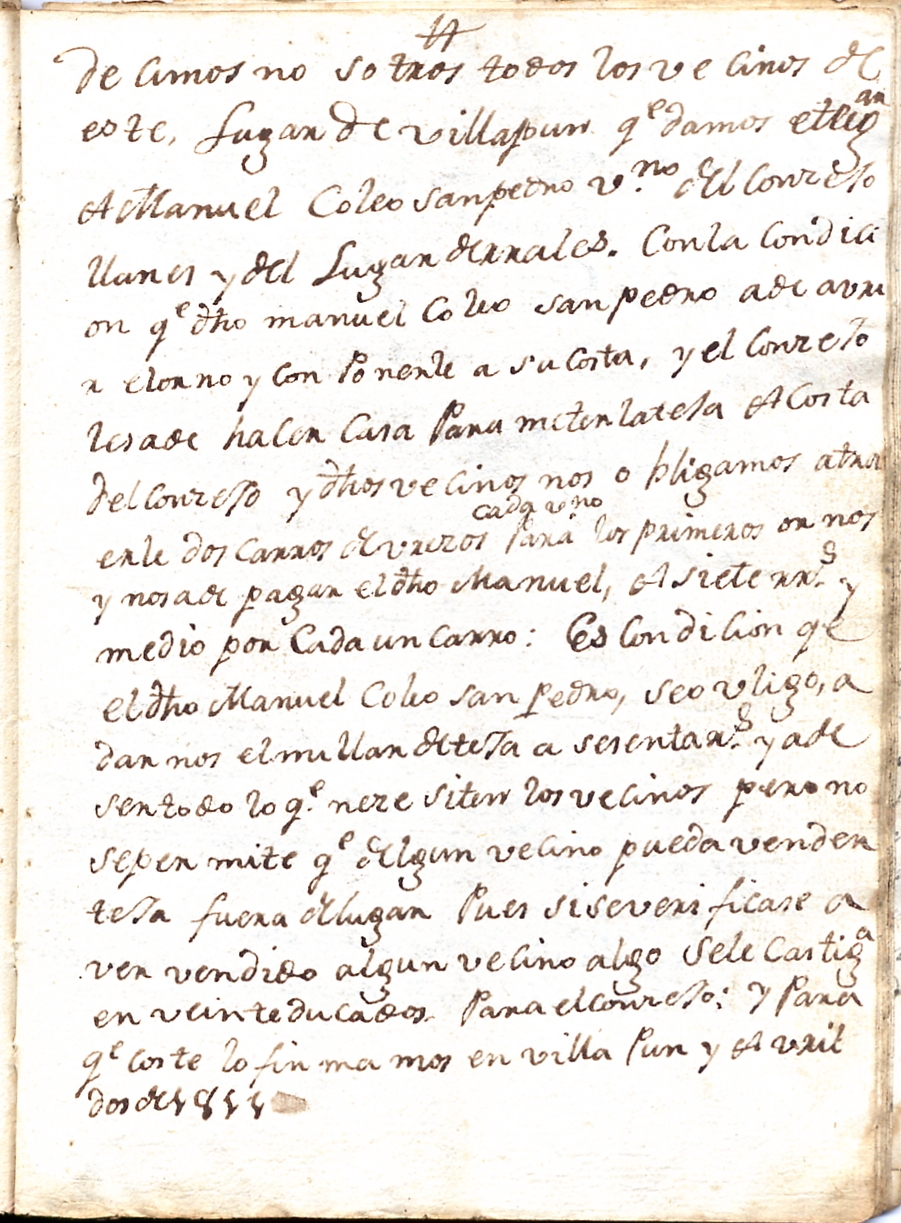 de cimos no sotros todos los ve cinos de
este, Lugar de villapun q.e damos el lug
ar
A Manuel Coleo sanpedro v.no del Conzejo
llanes y del Lugar de rrales. Con la Condici
on q.e dho manuel Coleo san pedro a de avri
r elorno y Con Ponerle a su Costa, y el Conzejo
les a de hacer Casa Para meter lateja A Costa
del Conzejo y dhos vecinos nos o bligamos atra
cada vno
erle dos Carros de vrezos Para los primeros or nos
y nos a de pagar el dho Manuel, A siete rr.s y
medio por Cada un Carro: Es Condicion qe
el dho Manuel Coleo san Pedro, se ovligo, a
dar nos el millar de teja a sesenta r.s y a de
ser todo lo q.e neze siten los vecinos pero no
se permite q.e algun vecino pueda vender
teja fuera del lugar Pues si se veri ficase a
ver vendido algun vecino algo se le Castiga
en veinte ducados Para el Conzejo: y Para
q.e Coste lo firma mos en villa Pun y Avril
dos de 1811